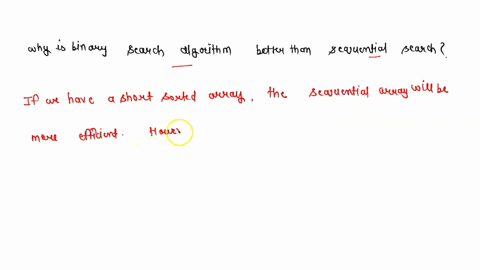 why is binary search algorithm better than sequential search?
If we have a short sorted array, the sequential array will be
more efficient. Howe